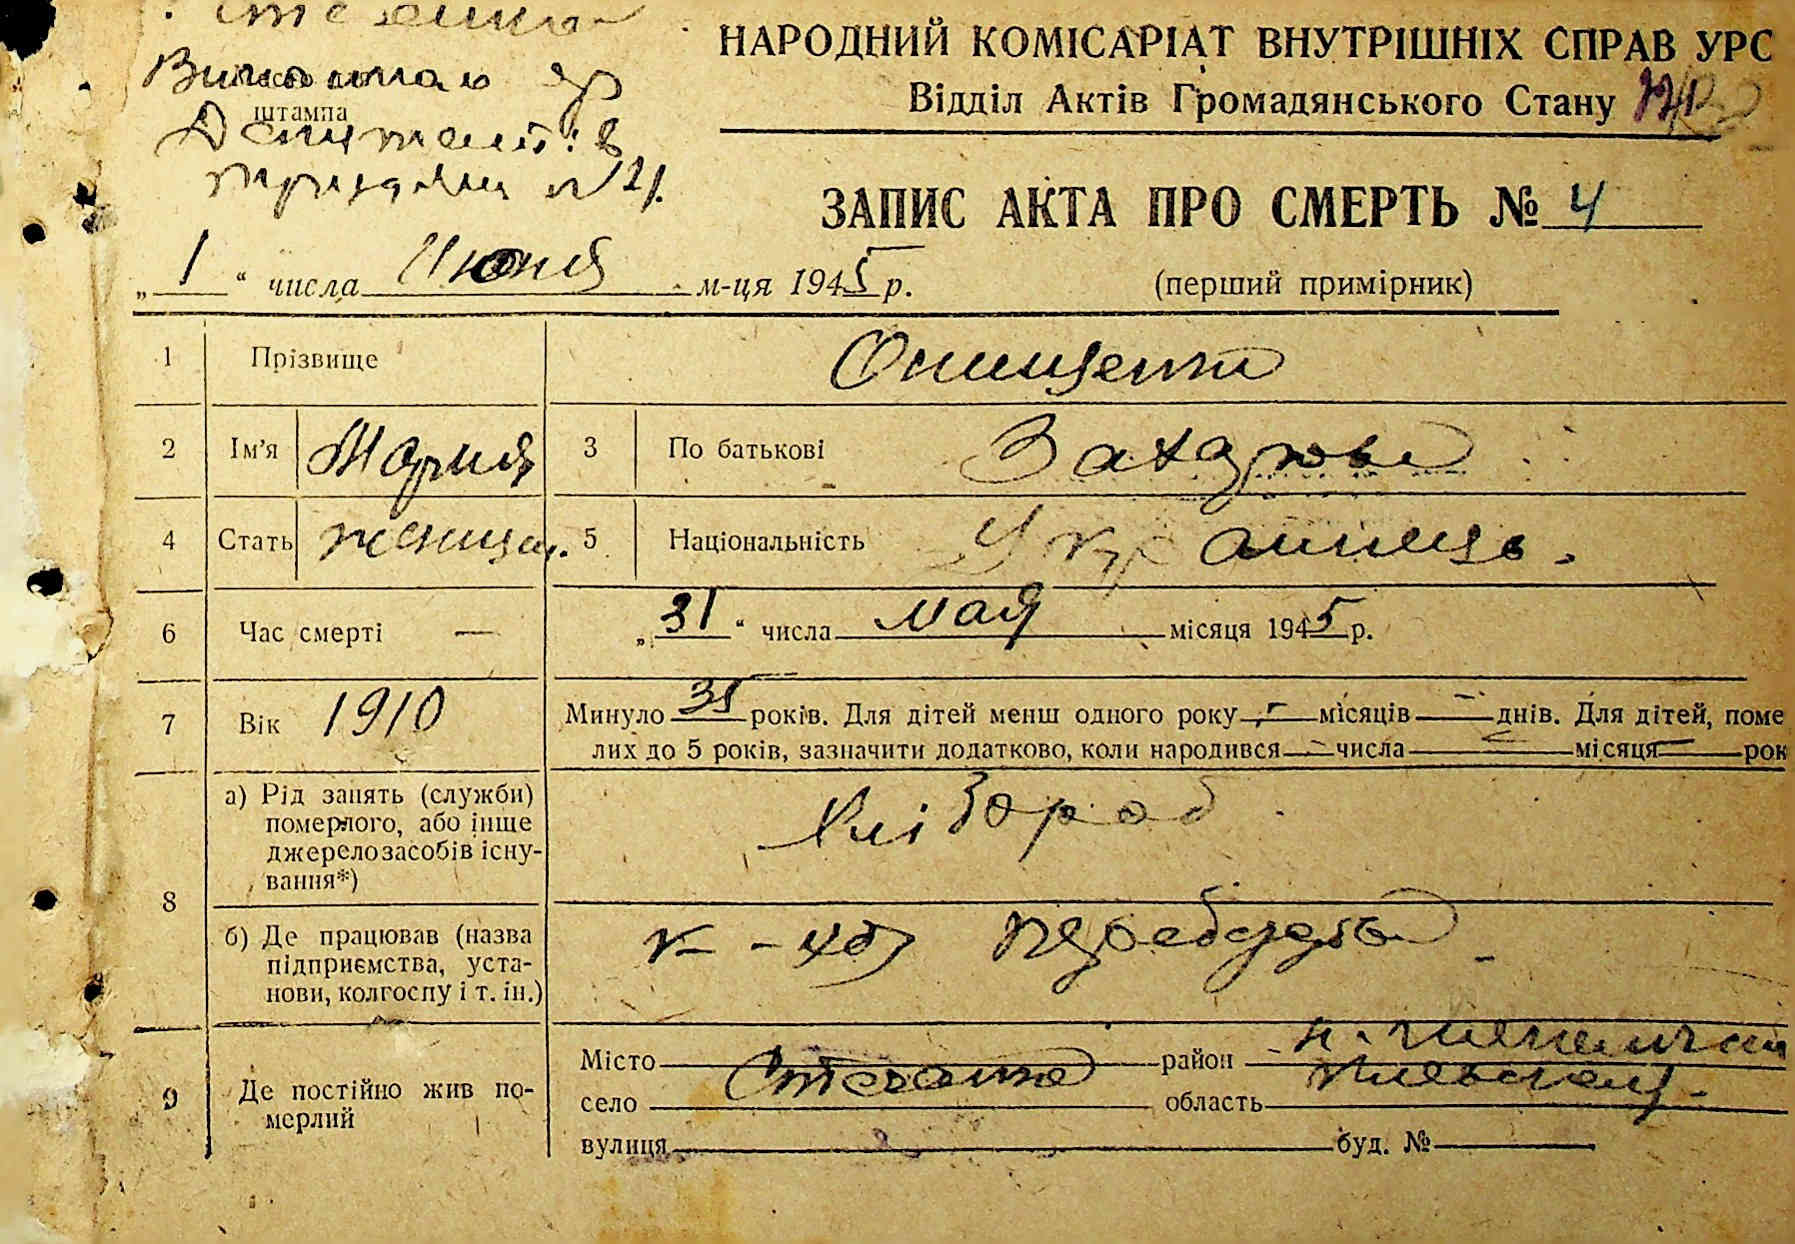 НАРОДНИЙ КОМІСАРІАТ ВНУТРІШНІХ СПРАВ УРС
Відділ Актів Громадянського Стану
штампа
Депутатів
ЗАПИС АКТА ПРО СМЕРТЬ № 4
„ 1 “ числа Июня м-ця 1945 р.
(перший примірник)
1 Прізвище Онищенко
2 Ім'я Мария 3 По батькові
4 Стать женщин. 5 Національність Украинець.
6 Час смерті — „ 31 “ числа мая місяця 1945 р.
7 Вік 1910 Минуло 35 років. Для дітей менш одного року - місяців - днів. Для дітей, поме
лих до 5 років, зазначити додатково, коли народився - числа - місяця - рок
8 а) Рід занять (служби) померлого, або інше джерело засобів існування*) Хлібороб
б) Де працював (назва підприємства, установи, колгоспу і т. ін.) к-хоз Перебудова
9 Де постійно жив померлий
Місто район
село область Киевская
вулиця буд. №